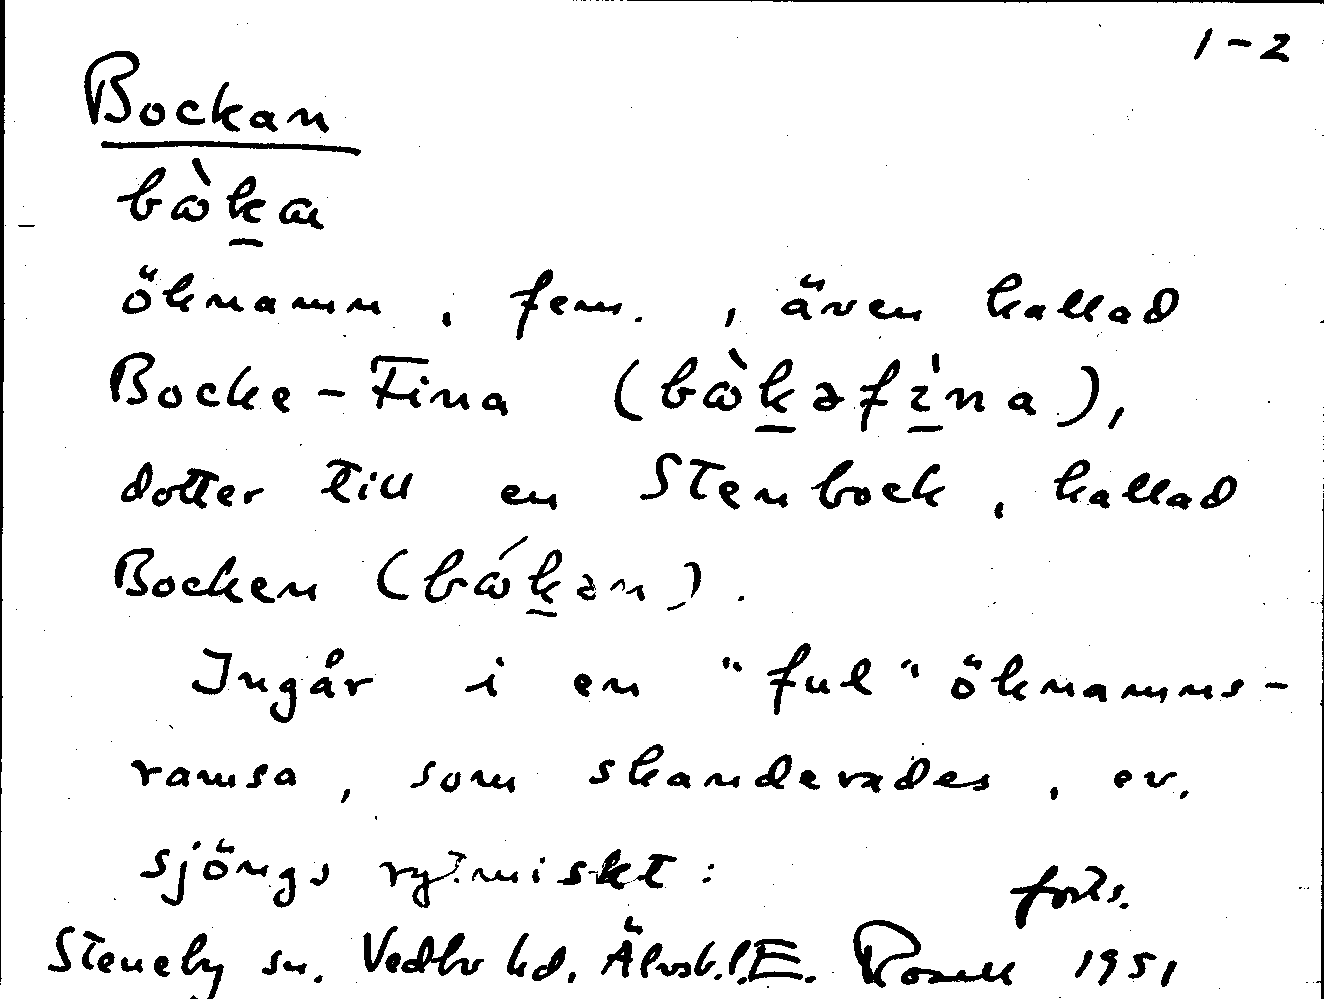 1-2
Bockan
bὼk̲a
öknamn, fem., även kallad
Bocke-Fina (bὼk̲əfì̲na),
dotter till en Stenbock, kallad
Bocken (bώk̲ən).
Ingår i en "ful" öknamns-
ramsa, som skanderades, ev.
sjöngs rytmiskt:
forts.
Steneby sn. Vedbo hd. Älvsb.l. E. Rosell 1951